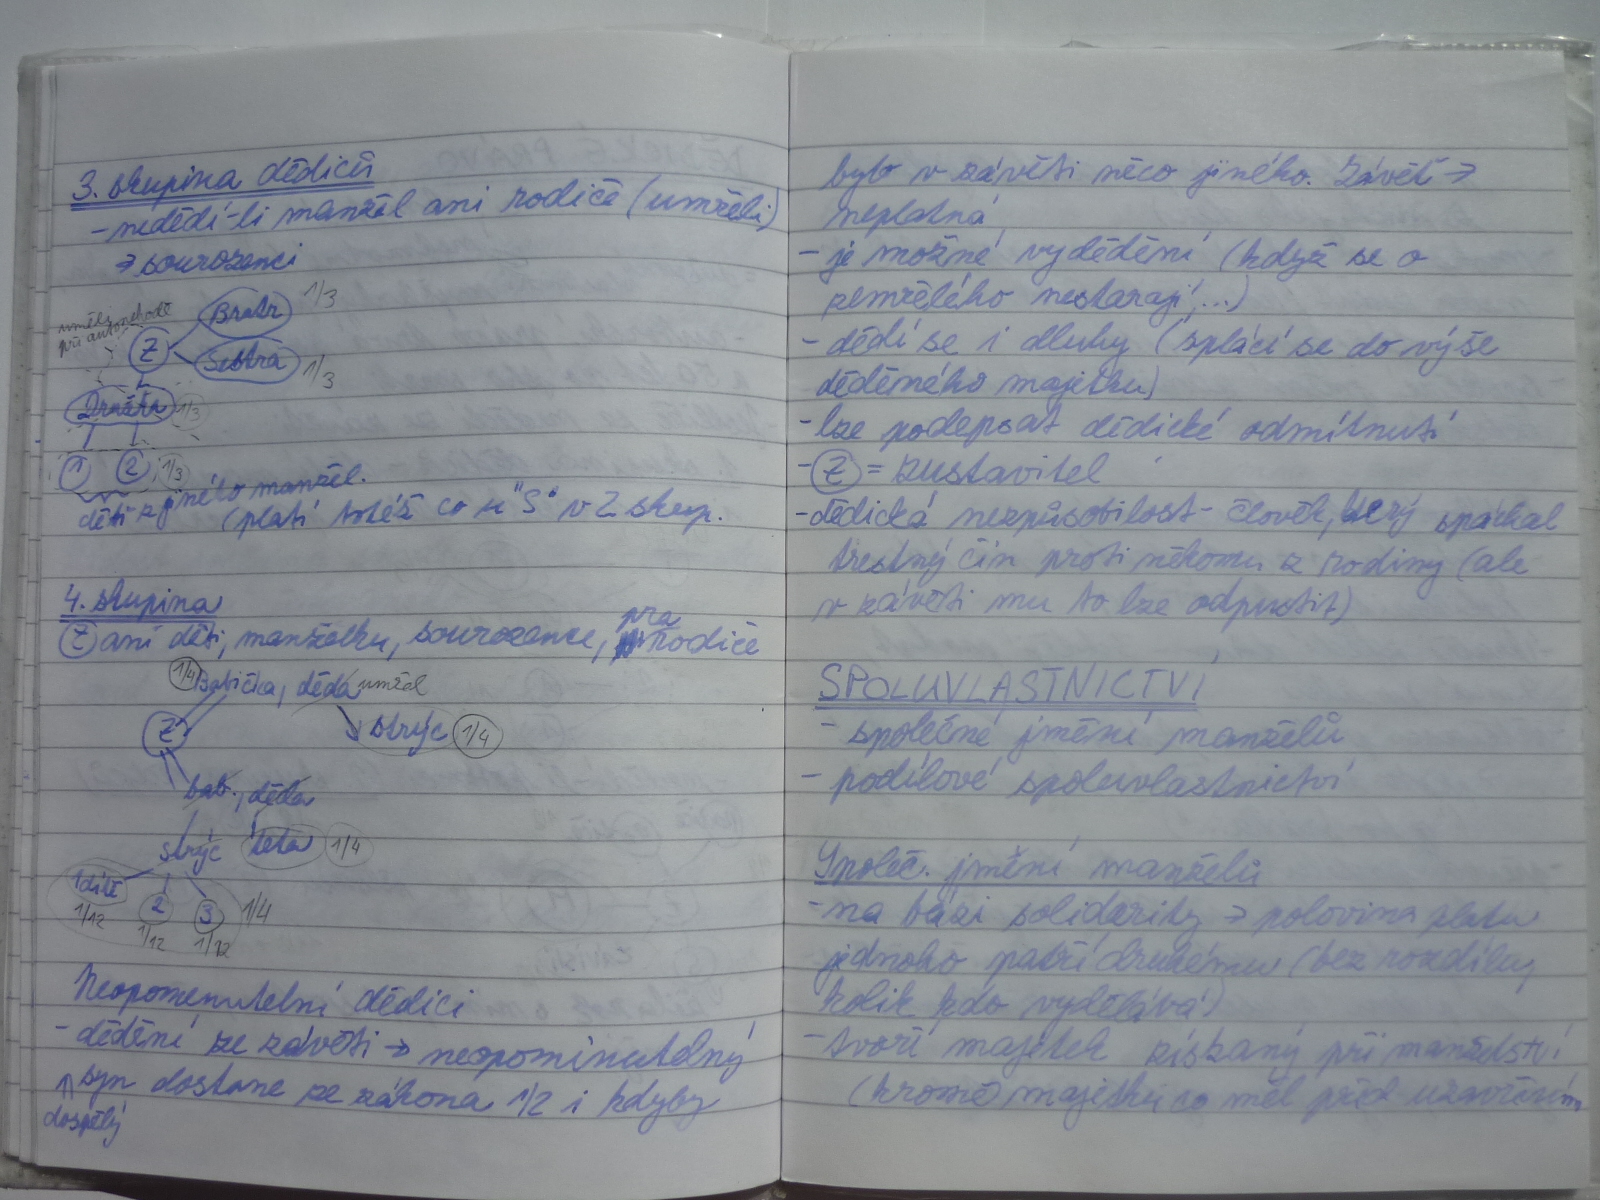 3. skupina dědiců
- nedědí-li manžel ani rodiče (umřeli)
→ sourozenci
umřeli při autonehodě
Z
Bratr 1/3
Sestra 1/3
1/3
1 2 1/3
děti z jiného manžel.
(platí totéž co u "S" v 2 skup.
4. skupina
Z ani děti, manželku, sourozence, prarodiče
1/4 Babička, děda umřel
Z
strýc 1/4
bab., děda
strýc teta 1/4
1 dítě 2 3 1/4
1/12 1/12 1/12
Neopomenutelní dědici
- dědění ze závěti → neopominutelný
syn dostane ze zákona 1/2 i kdyby
↑ dospělý
bylo v závěti něco jiného. Závěť →
neplatná
- je možné vydědění (když se o
zemřelého nestarají,...)
- dědí se i dluhy (splácí se do výše
děděného majetku)
- lze podepsat dědické odmítnutí
- Z = zustavitel
- dědická nezpůsobilost - člověk, který spáchal
trestný čin proti někomu z rodiny (ale
v závěti mu to lze odpustit)
SPOLUVLASTNICTVÍ
- společné jmění manželů
- podílové spoluvlastnictví
Společ. jmění manželů
- na bázi solidarity → polovina platu
jednoho patří druhému (bez rozdílu,
kolik kdo vydělává)
- tvoří majetek získaný při manželství
(kromě majetku co měl před uzavřením